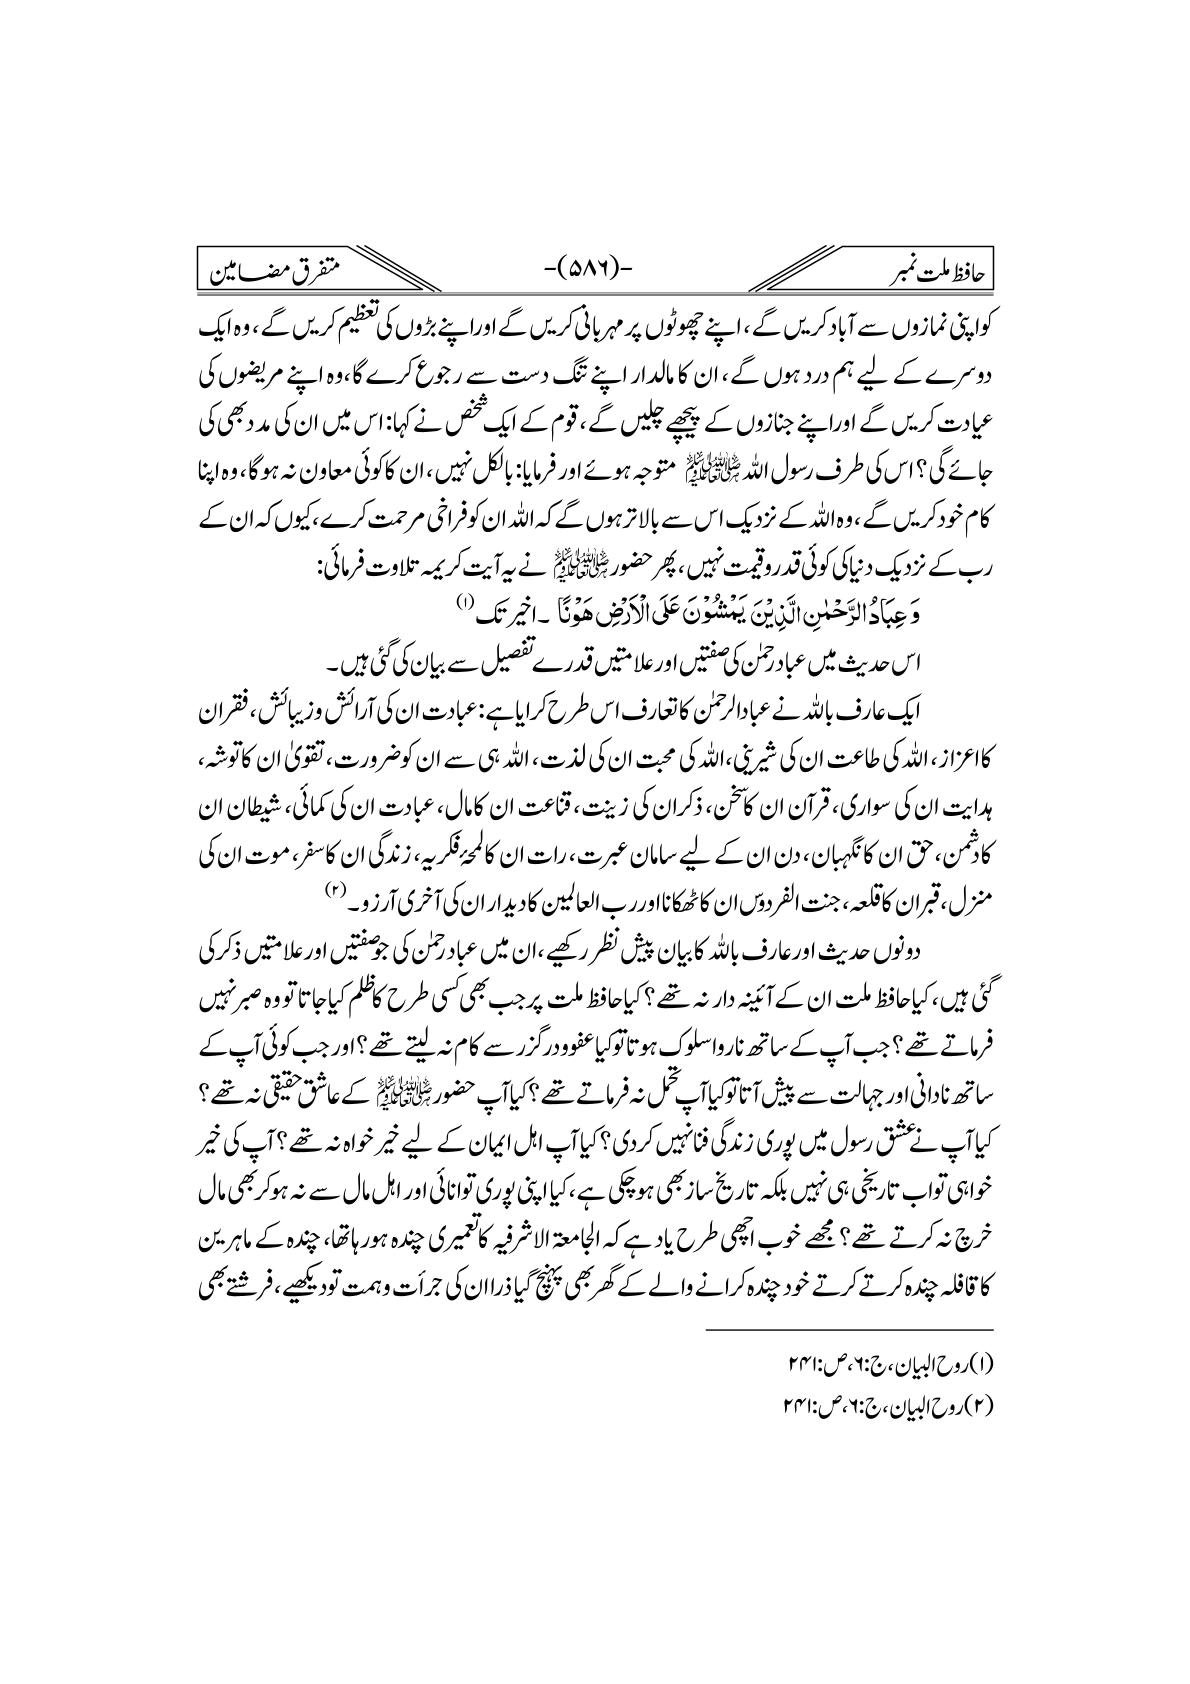 حافظ ملت نمبر
-(۵۸۶)-
متفرق مضامین
کواپنی نمازوں سے آباد کریں گے، اپنے چھوٹوں پر مہربانی کریں گے اوراپنے بڑوں کی تعظیم کریں گے، وہ ایک
دوسرے کے لیے ہم درد ہوں گے، ان کا مالدار اپنے تنگ دست سے رجوع کرے گا، وہ اپنے مریضوں کی
عیادت کریں گے اوراپنے جنازوں کے پیچھے چلیں گے، قوم کے ایک شخص نے کہا: اس میں ان کی مدد بھی کی
جائے گی؟ اس کی طرف رسول اللہ ﷺ متوجہ ہوئے اور فرمایا: بالکل نہیں، ان کا کوئی معاون نہ ہوگا، وہ اپنا
کام خود کریں گے، وہ اللہ کے نزدیک اس سے بالا تر ہوں گے کہ اللہ ان کو فراخی مرحمت کرے، کیوں کہ ان کے
رب کے نزدیک دنیا کی کوئی قدر وقیمت نہیں، پھر حضور ﷺ نے یہ آیت کریمہ تلاوت فرمائی:
وَ عِبَادُ الرَّحْمٰنِ الَّذِیْنَ یَمْشُوْنَ عَلَی الْاَرْضِ هَوْنًا ۔ اخیر تک (۱)
اس حدیث میں عباد رحمٰن کی صفتیں اور علامتیں قدرے تفصیل سے بیان کی گئی ہیں۔
ایک عارف باللہ نے عباد الرحمٰن کا تعارف اس طرح کرایا ہے: عبادت ان کی آرائش و زیبائش، فقر ان
کا اعزاز، اللہ کی طاعت ان کی شیرینی، اللہ کی محبت ان کی لذت، اللہ ہی سے ان کو ضرورت، تقویٰ ان کا توشہ،
ہدایت ان کی سواری، قرآن ان کا سخن، ذکر ان کی زینت، قناعت ان کا مال، عبادت ان کی کمائی، شیطان ان
کا دشمن، حق ان کا نگہبان، دن ان کے لیے سامان عبرت، رات ان کا لمحۂ فکریہ، زندگی ان کا سفر، موت ان کی
منزل، قبر ان کا قلعہ، جنت الفردوس ان کا ٹھکانا اور رب العالمین کا دیدار ان کی آخری آرزو۔ (۲)
دونوں حدیث اور عارف باللہ کا بیان پیش نظر رکھیے، ان میں عباد رحمٰن کی جو صفتیں اور علامتیں ذکر کی
گئی ہیں، کیا حافظ ملت ان کے آئینہ دار نہ تھے؟ کیا حافظ ملت پر جب بھی کسی طرح کا ظلم کیا جاتا تو وہ صبر نہیں
فرماتے تھے؟ جب آپ کے ساتھ ناروا سلوک ہوتا تو کیا عفو و درگزر سے کام نہ لیتے تھے؟ اور جب کوئی آپ کے
ساتھ نادانی اور جہالت سے پیش آتا تو کیا آپ تحمل نہ فرماتے تھے؟ کیا آپ حضور ﷺ کے عاشق حقیقی نہ تھے؟
کیا آپ نے عشق رسول میں پوری زندگی فنا نہیں کردی؟ کیا آپ اہل ایمان کے لیے خیر خواہ نہ تھے؟ آپ کی خیر
خواہی تو اب تاریخی ہی نہیں بلکہ تاریخ ساز بھی ہو چکی ہے، کیا اپنی پوری توانائی اور اہل مال سے نہ ہو کر بھی مال
خرچ نہ کرتے تھے؟ مجھے خوب اچھی طرح یاد ہے کہ الجامعۃ الاشرفیہ کا تعمیری چندہ ہو رہا تھا، چندہ کے ماہرین
کا قافلہ چندہ کرتے کرتے خود چندہ کرانے والے کے گھر بھی پہنچ گیا ذرا ان کی جرأت و ہمت تو دیکھیے، فرشتے بھی
(۱) روح البیان، ج:۶، ص:۲۴۱
(۲) روح البیان، ج:۶، ص:۲۴۱